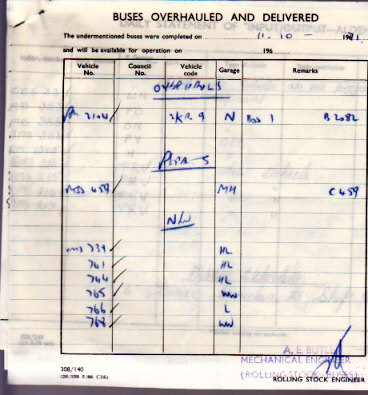 BUSES OVERHAULED AND DELIVERED
The undermentioned buses were completed on 11.10 - 1971.
and will be available for operation on 196
Vehicle No. Council No. Vehicle code Garage Remarks
OVERHAULS
2104 / 2RR9 N Box 1 B2082
REPAIRS
MB 459 / MH C459
NEW
739 / HL
741 / HL
744 / HL
765 / WW
766 / L
768 / WW
A. E. BUTLER
MECHANICAL ENGINEER
(ROLLING STOCK, BUSES)
ROLLING STOCK ENGINEER
308/140